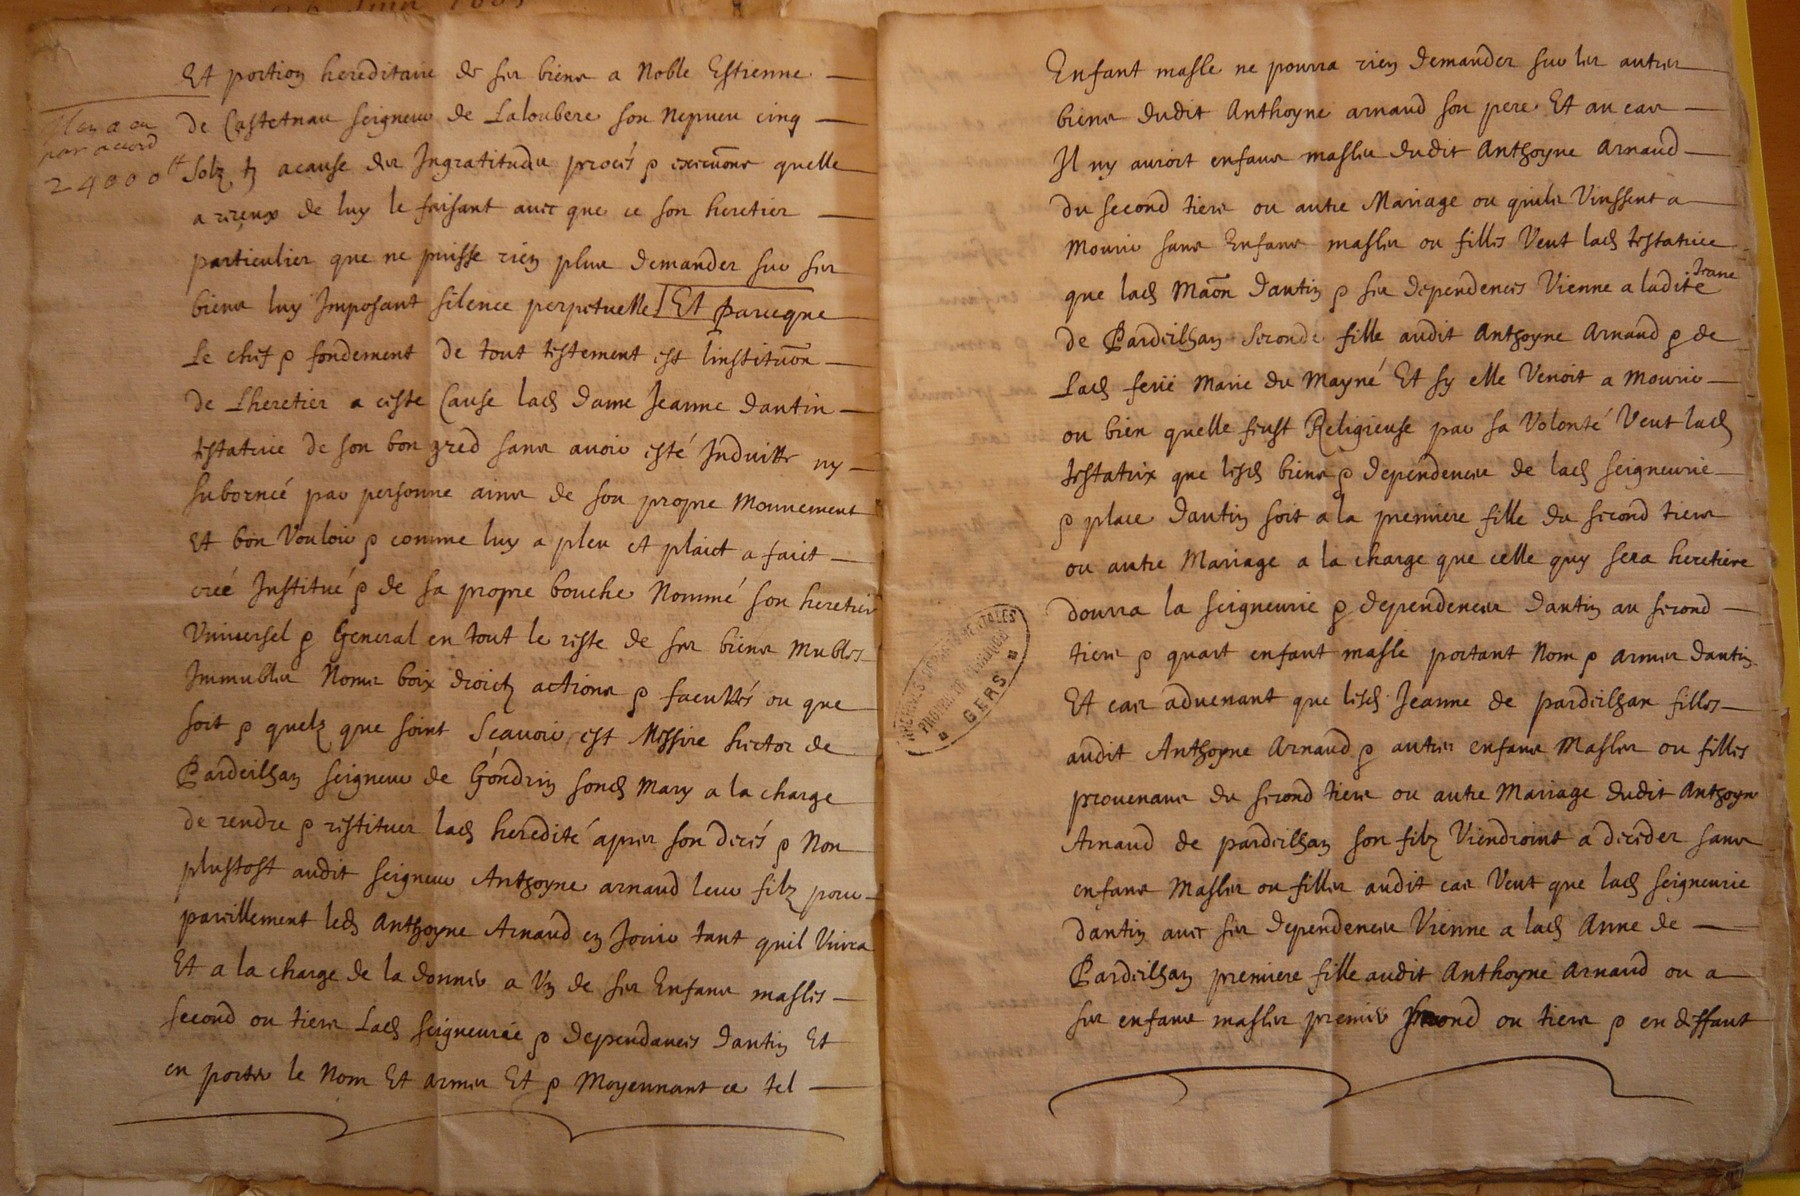 Et portion hereditaire de ses biens a Noble Estienne
de Castetnau seigneur de Laloubere son Nepueu cinq
Il en a eu
par accord
24000 lt
solz tz acause des Ingratitudes procés & execuõns quelle
a receux de luy le faisant avec que ce son heretier
particulier que ne puisse rien plus demander sur ses
biens luy Imposant silence perpetuelle Et Parceque
Le chef & fondement de tout testement est linstituõn
de Lheretier a ceste Cause lad Dame Jeanne Dantin
testatrice de son bon gred sans avoir esté Induitte ny
subornée par personne ains de son propre Mouvement
Et bon Vouloir & comme luy a pleu et plaict a faict
creé Institué & de sa propre bouche Nommé son heretier
Universel & General en tout le reste de ses biens Mubles
Immubles Noms voix droictz actions & facultés ou que
soit & quelz que soint Scavoir est Messire hector de
Pardeilhan seigneur de Gondrin sond Mary a la charge
de rendre & restituer lad heredité apres son decés & Non
plustost audit seigneur Anthoyne arnaud leur filz pour
pareillement led Anthoyne Arnaud en Jouir tant quil Vivra
Et a la charge de la donner a Un de ses Enfans masles
second ou tiers Lad seigneurie & dependances dantin Et
en porter le Nom Et armes Et & Moyennant ce tel
Enfant masle ne pourra rien demander sur les autres
biens dudit Anthoyne arnaud son pere Et au cas
Il ny auroit enfans masles dudit Anthoyne Arnaud
du second tiers ou autre Mariage ou quils Vinssent a
Mourir sans Enfans masles ou filles Veut lad testatrice
que lad Maõn dantin & ses dependences Vienne a ladite Jeane
de Pardeilhan seconde fille audit Anthoyne Arnaud & de
Lad feüe Marie du Mayné Et sy elle Venoit a Mourir
ou bien quelle feust Religieuse par sa Volonté Veut lad
testatrix que lesd biens & dependences de lad seigneurie
& place dantin soit a la premiere fille du second tiers
ou autre Mariage a la charge que celle quy sera heretiere
dourra la seigneurie & dependences dantin au second
tiers & quart enfant masle portant Nom & armes dantin
Et cas advenant que lesd Jeanne de pardeilhan filles
audit Anthoyne Arnaud & autres enfans Masles ou filles
provenans du second tiers ou autre Mariage dudit Anthoyne
Arnaud de pardeilhan son filz Viendroint a deceder sans
enfans Masles ou filles audit cas Veut que lad seigneurie
dantin avec ses dependences Vienne a lad Anne de
Pardeilhan premiere fille audit Anthoyne Arnaud ou a
ses enfans masles premier second ou tiers & en deffaut
ARCHIVES DEPARTEMENTALES
GERS